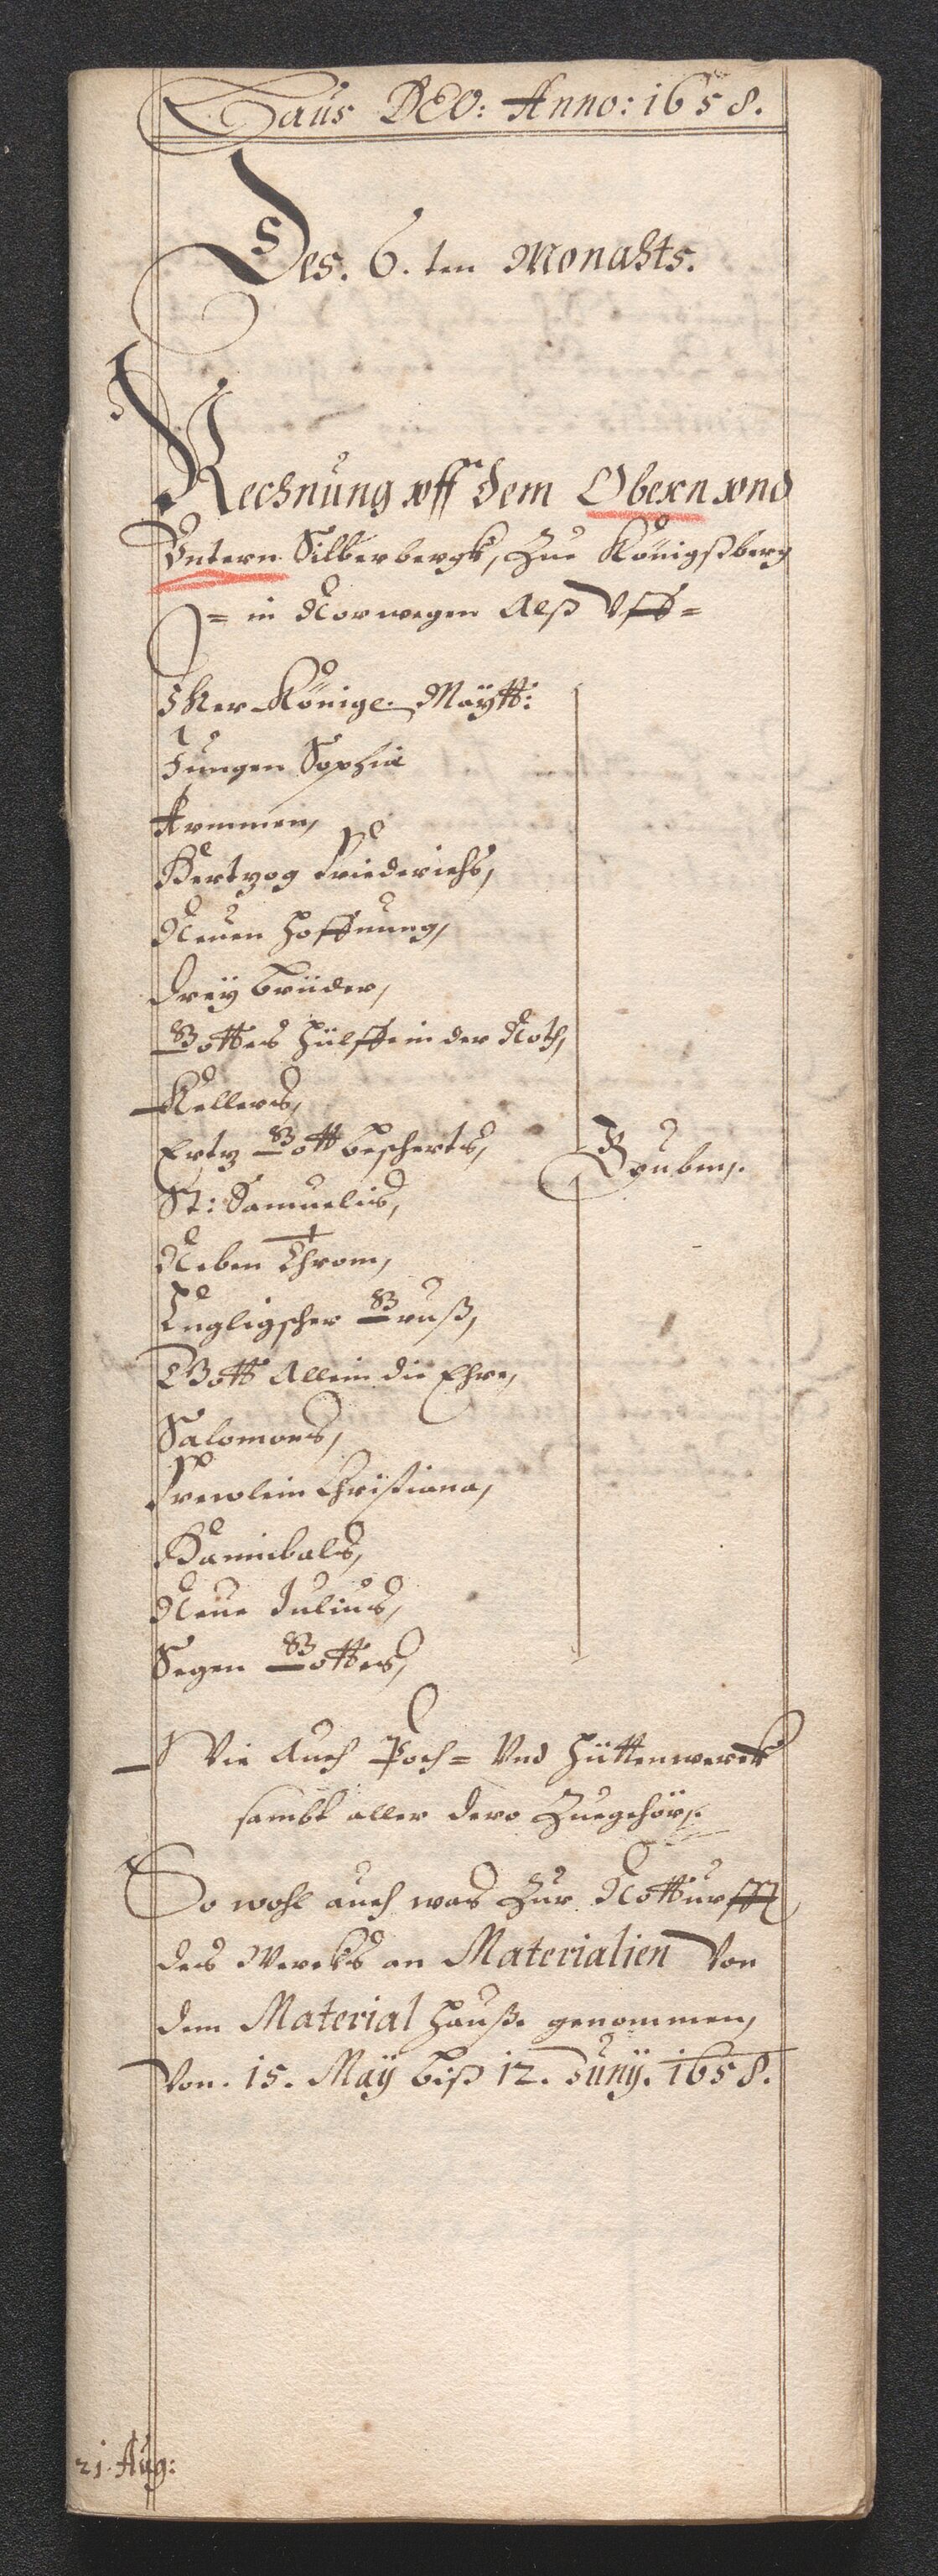 Laus DEO: Anno: 1658.
Des. 6. ten Monahts.
Rechnung vff dem Obern vnd
Vntern Silberbergk, Zue Königßberg
= in Norwegen Alß Vff =
Ihrer Königl. Maÿtt:
Jungen Sophia
Armmen,
Hertzog Friederichs,
Neuen Hoffnung,
Dreÿ brüder,
Gottes Hülffe in der Noth,
Kellers,
Ertz Gott beschertes,
Gruben,.
St: Samuelis,
Neben Throm,
Engligscher Gruß,
Gott Allein die Ehre,
Salomons,
Frewlein Christiana,
Hannibals,
Neue Julius,
Segen Gottes,
Wie Auch Poch= Vnd Hüttenwerck
sambt aller dero Zuegehör,.
So wohl auch was Zur Notturfft
des Wercks an Materialien Von
dem Material Hauße genommen,
Von. 15. Maÿ biß 12. Junÿ. 1658.
21. Aug: